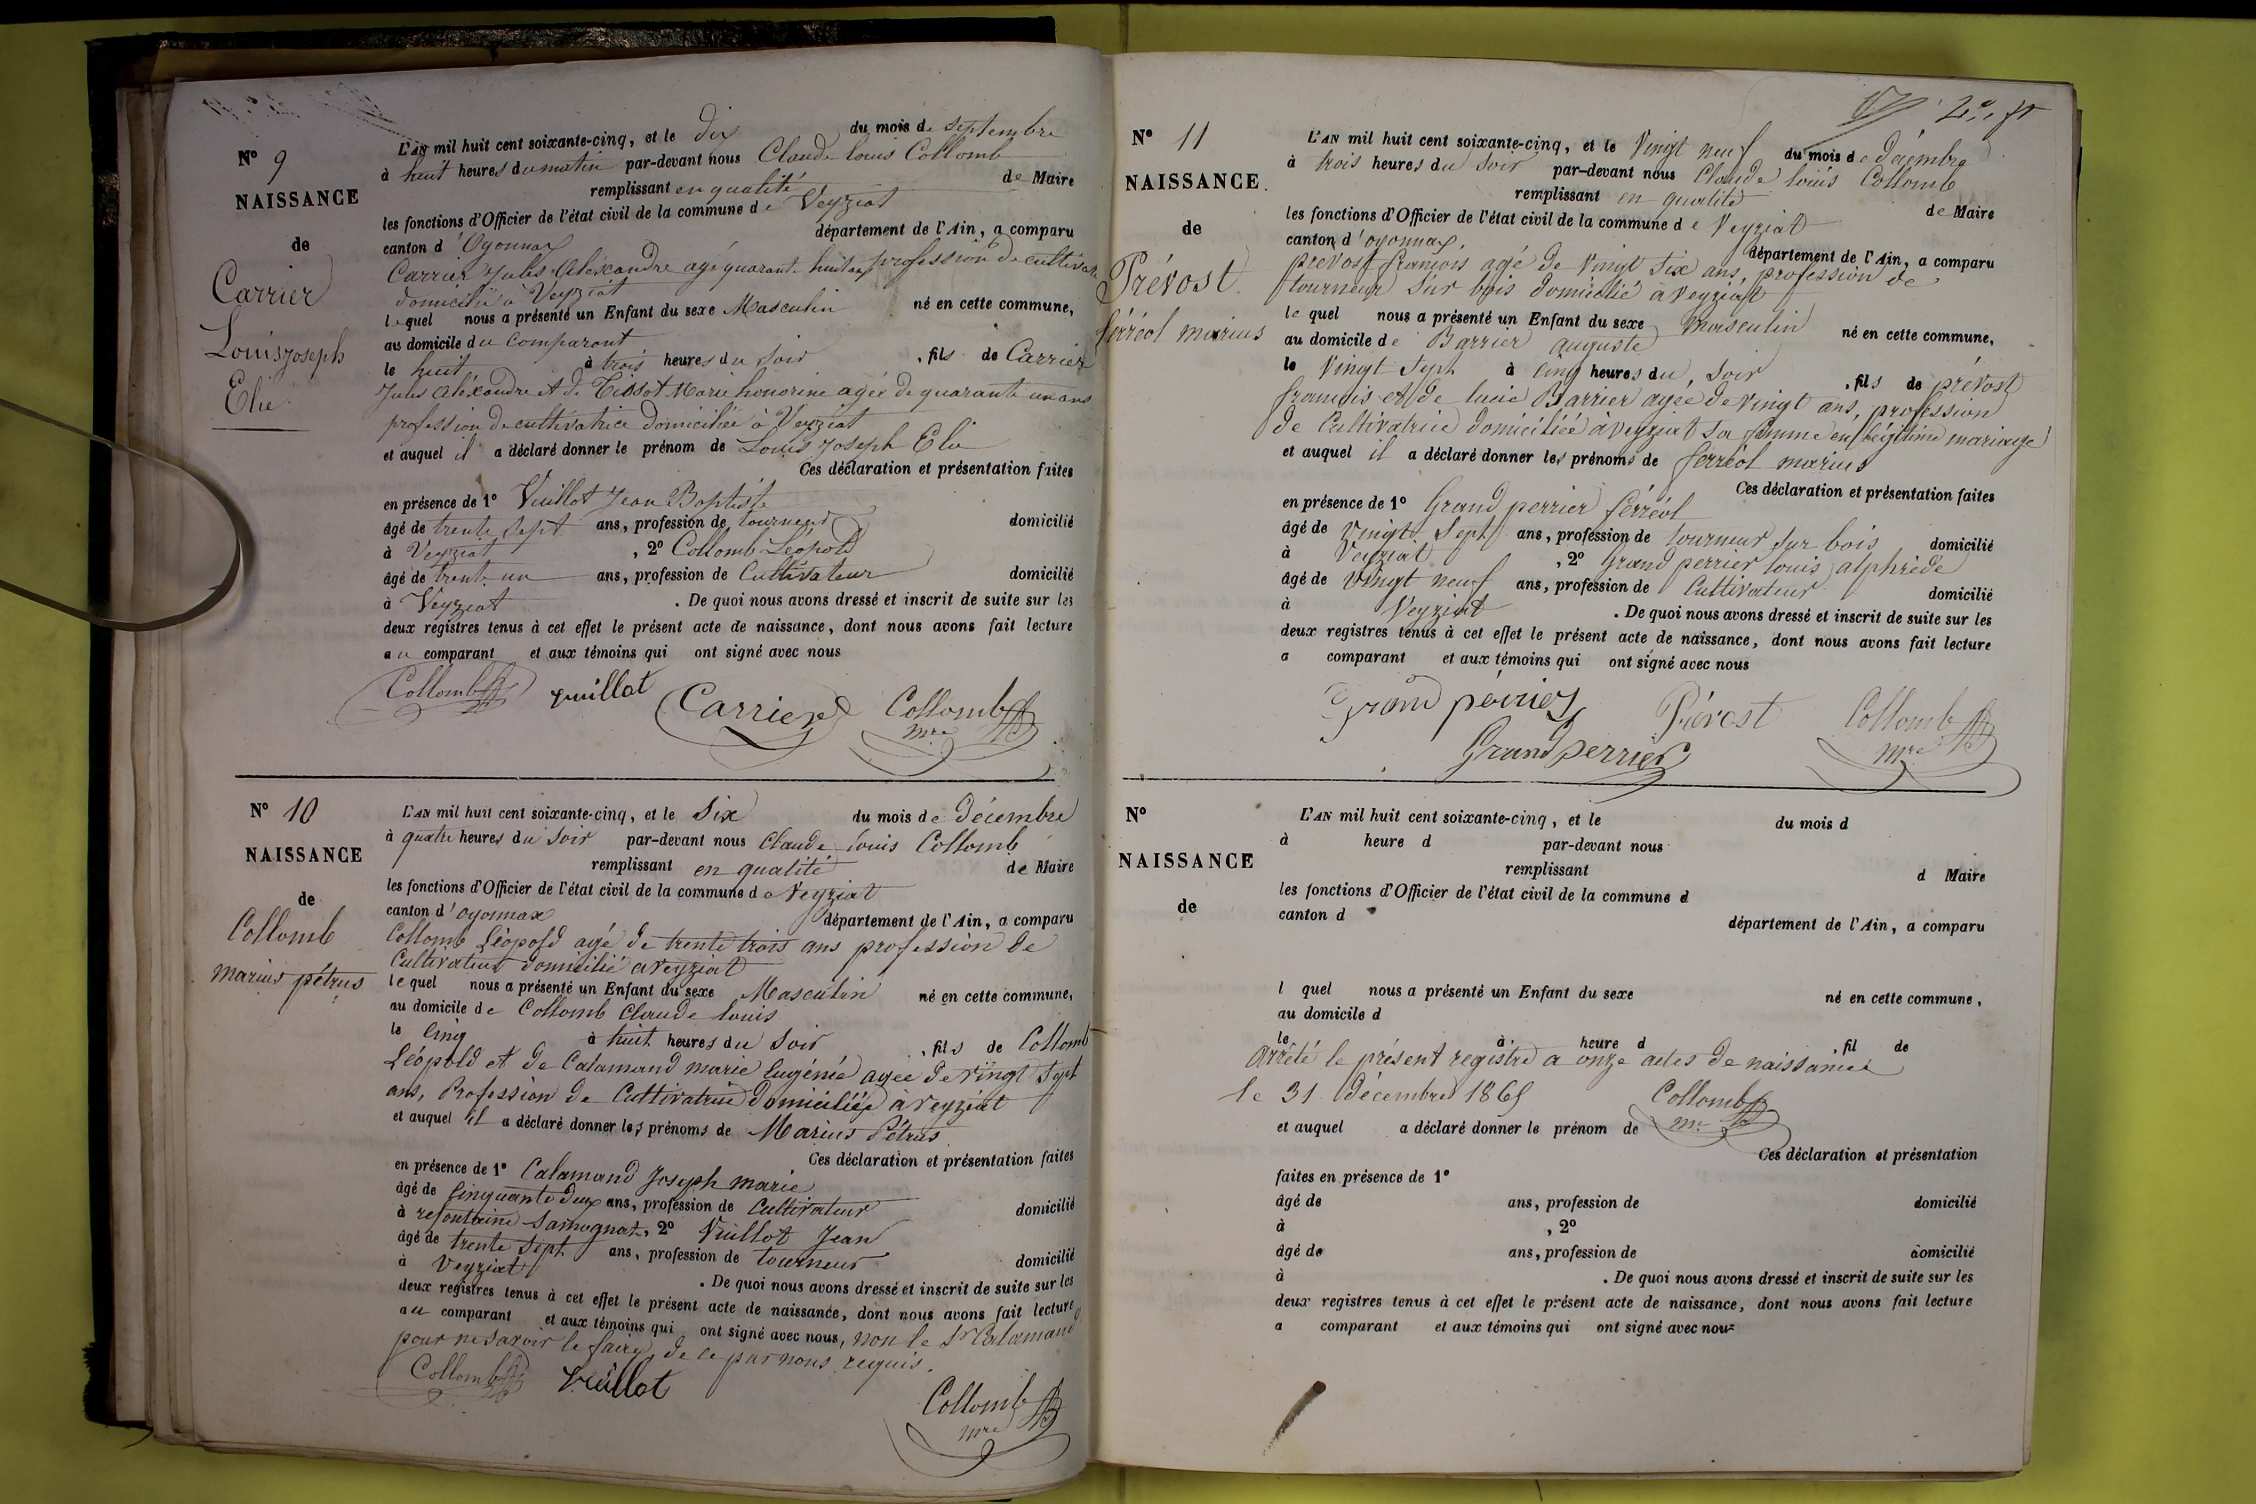 N° 9
NAISSANCE
de
Carrier
Louis Joseph
Elie
L'AN mil huit cent soixante-cinq, et le dix du mois de septembre
à huit heures du matin par-devant nous Claude louis Collomb
remplissant en qualité de Maire
les fonctions d'Officier de l'état civil de la commune de Veyziat
canton d'Oyonnax département de l'Ain, a comparu
Carrier Jules Aléxandre agé quarante huit ans profession de cultivat
domicilié à Veyziat
lequel nous a présenté un Enfant du sexe Masculin né en cette commune,
au domicile du Comparant
le huit à trois heures du soir , fils de Carrier
Jules Aléxandre et de Tissot Marie honorine agée de quarante un ans
profession de cultivatrice domiciliée à Veyziat
et auquel il a déclaré donner le prénom de Louis Joseph Elie
Ces déclaration et présentation faites
en présence de 1° Vuillot Jean Baptiste
âgé de trente sept ans, profession de tourneur domicilié
à Veyziat , 2° Collomb Léopold
âgé de trente un ans, profession de Cultivateur domicilié
à Veyziat . De quoi nous avons dressé et inscrit de suite sur les
deux registres tenus à cet effet le présent acte de naissance, dont nous avons fait lecture
au comparant et aux témoins qui ont signé avec nous
Collomb vuillot Carrier Collomb
mre
N° 10
NAISSANCE
de
Collomb
marius pétrus
L'AN mil huit cent soixante-cinq, et le Six du mois de Décembre
à quatre heures du Soir par-devant nous Claude louis Collomb
remplissant en qualité de Maire
les fonctions d'Officier de l'état civil de la commune de Veyziat
canton d'oyonnax département de l'Ain, a comparu
Collomb Léopold agé de trente trois ans profession de
Cultivateur domicilié a veyziat
lequel nous a présenté un Enfant du sexe Masculin né en cette commune,
au domicile de Collomb Claude louis
le Cinq à huit heures du Soir , fils de Collomb
Léopold et de Calamand marie Eugénie agée de vingt Sept
ans, Profession de Cultivatrice domiciliée à veyziat
et auquel il a déclaré donner les prénoms de Marius Pétrus
Ces déclaration et présentation faites
en présence de 1° Calamand Joseph marie
âgé de Cinquante deux ans, profession de Cultivateur domicilié
à Samognat, 2° Vuillot Jean
âgé de trente Sept ans, profession de tourneur domicilié
à Veyziat . De quoi nous avons dressé et inscrit de suite sur les
deux registres tenus à cet effet le présent acte de naissance, dont nous avons fait lecture
au comparant et aux témoins qui ont signé avec nous, non le Sr Calamand
pour ne savoir le faire, de ce par nous requis.
Collomb vuillot Collomb
mre
N° 11
NAISSANCE
de
Prévost
férréol marius
L'AN mil huit cent soixante-cinq, et le Vingt neuf du mois de décembre
à trois heures du Soir par-devant nous Claude louis Collomb
remplissant en qualité de Maire
les fonctions d'Officier de l'état civil de la commune de Veyziat
canton d'oyonnax, département de l'Ain, a comparu
prevost françois agé de vingt Six ans, profession de
tourneur Sur bois domicilié à veyziat
lequel nous a présenté un Enfant du sexe Masculin né en cette commune,
au domicile de Barrier auguste
le Vingt Sept à Cinq heures du Soir , fils de prévost
françois et de lucie Barrier agée de vingt ans, profession
de Cultivatrice domiciliée à veyziat Sa femme en légitime mariage
et auquel il a déclaré donner les prénoms de ferréol marius
Ces déclaration et présentation faites
en présence de 1° Grand perrier férréol
âgé de Vingt Sept ans, profession de tourneur Sur bois domicilié
à Veyziat , 2° Grand perrier louis alphrède
âgé de Vingt neuf ans, profession de Cultivateur domicilié
à Veyziat . De quoi nous avons dressé et inscrit de suite sur les
deux registres tenus à cet effet le présent acte de naissance, dont nous avons fait lecture
a comparant et aux témoins qui ont signé avec nous
Grand perrier Prévost Collomb
Grand perrier mre
N°
NAISSANCE
de
L'AN mil huit cent soixante-cinq, et le du mois d
à heure d par-devant nous
remplissant d Maire
les fonctions d'Officier de l'état civil de la commune d
canton d département de l'Ain, a comparu
l quel nous a présenté un Enfant du sexe né en cette commune,
au domicile d
le à heure d , fil de
Arrêté le présent registre a onze actes de naissance
le 31 Décembre 1865 Collomb
mre
et auquel a déclaré donner le prénom de
Ces déclaration et présentation
faites en présence de 1°
âgé de ans, profession de domicilié
à , 2°
âgé de ans, profession de domicilié
à . De quoi nous avons dressé et inscrit de suite sur les
deux registres tenus à cet effet le présent acte de naissance, dont nous avons fait lecture
a comparant et aux témoins qui ont signé avec nous